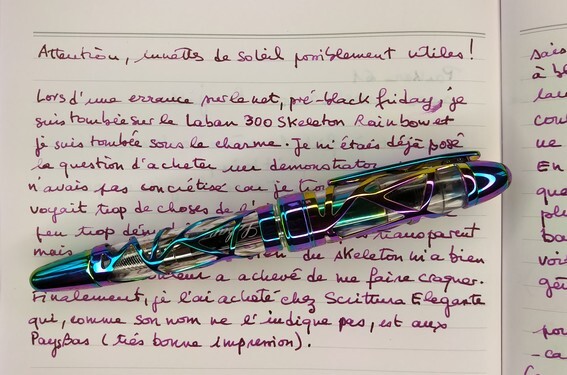 Attention, lunettes de soleil possiblement utiles !
Lors d'une errance sur le net, pré-black friday, je
suis tombée sur le Laban 300 Skeleton Rainbow et
je suis tombée sous le charme. Je m'étais déjà posé
la question d'acheter un demonstrator
n'avais pas concrétisé car je
voyait trop de choses de
peu trop transparent
mais du skeleton m'a bien
a achevé de me faire craquer.
Finalement, je l'ai acheté chez Scrittura Elegante
qui, comme son nom ne l'indique pas, est aux
Pays Bas (très bonne impression).
sais
à bl
cou
ne
En
que
plu
ba
voi
gé
pou
-ca